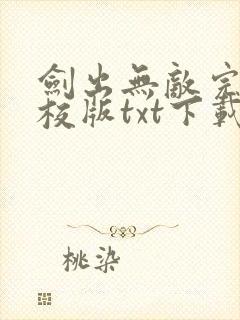 劍出無敵完
校版txt下載
桃染